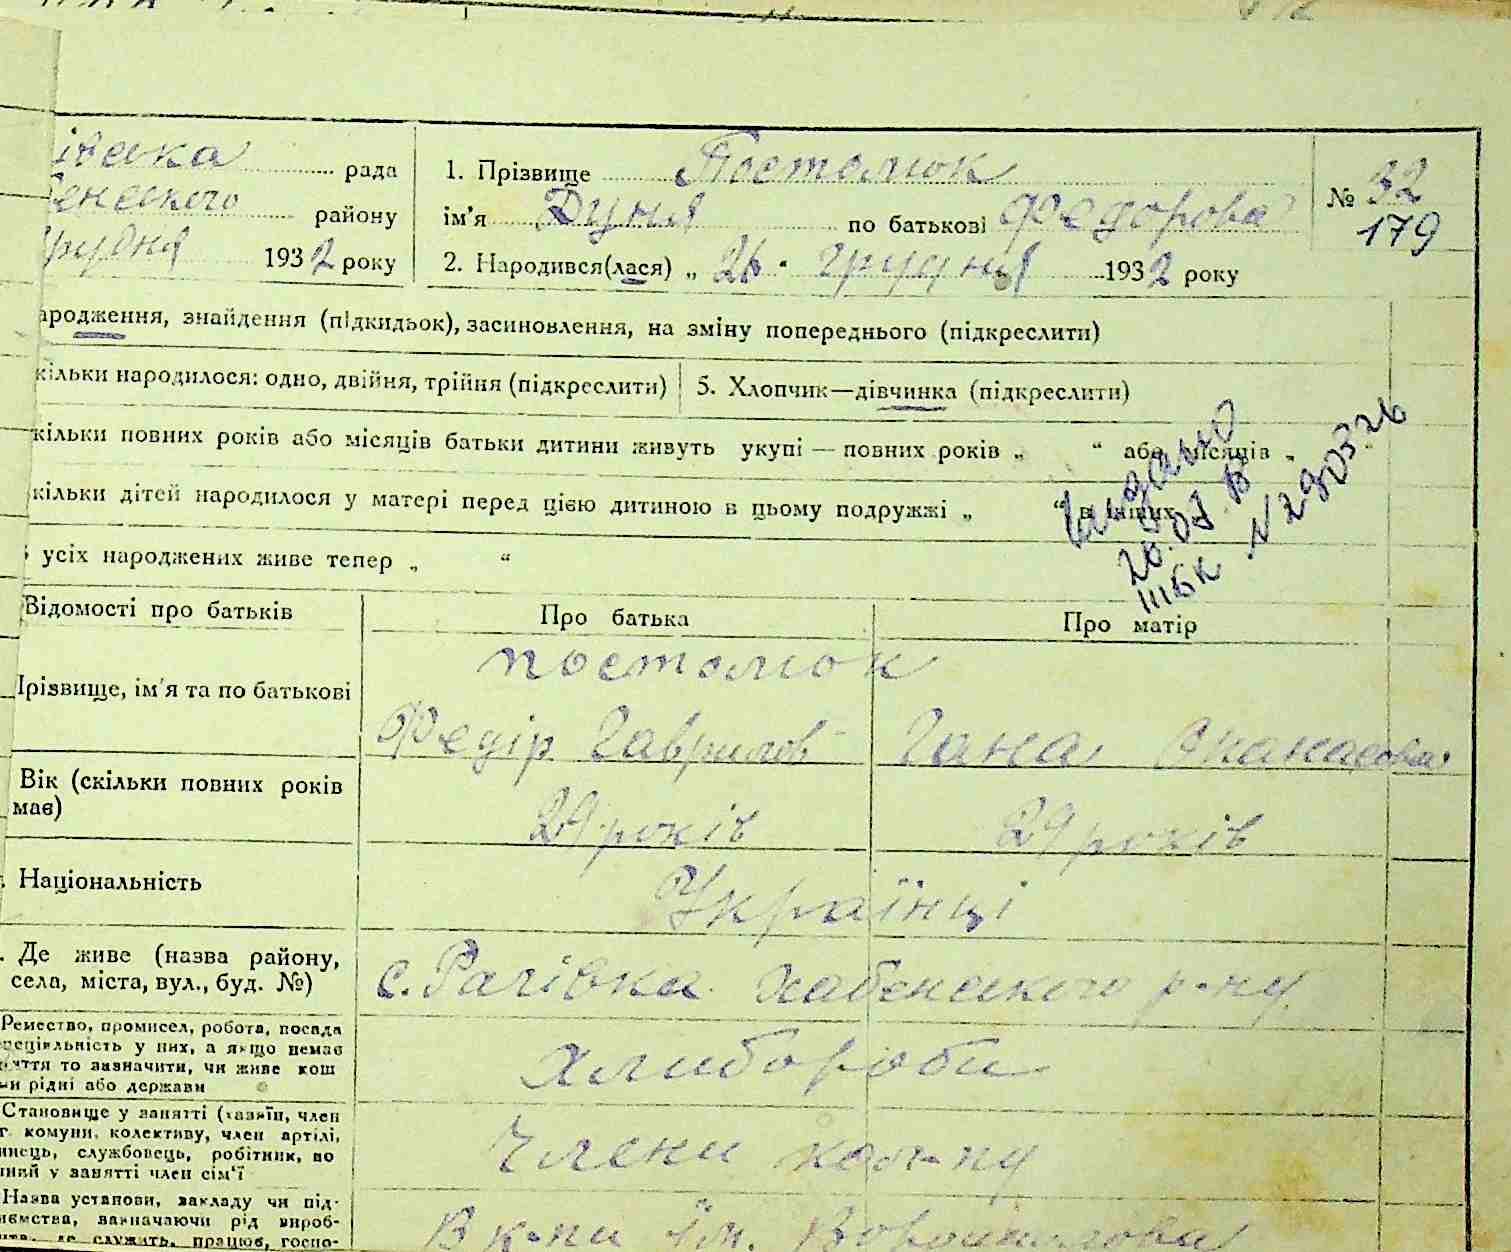 івська рада
бенського району
грудня 1932 року
1. Прізвище Постолюк
ім'я Дуня по батькові Федорова
№ 32
179
2. Народився(лася) „ 26 . грудня 1932 року
ародження, знайдення (підкидьок), засиновлення, на зміну попереднього (підкреслити)
кільки народилося: одно, двійня, трійня (підкреслити)
5. Хлопчик—дівчинка (підкреслити)
кільки повних років або місяців батьки дитини живуть укупі — повних років „ “ або місяців „
кільки дітей народилося у матері перед цією дитиною в цьому подружжі „ “ в інших
усіх народжених живе тепер „ “
Видано
ШБК № 290326
Відомості про батьків
Про батька
Про матір
Прізвище, ім'я та по батькові
Постолюк
Федір Гаврилов
Гана Опанасова
Вік (скільки повних років має)
29 років
29 років
Національність
Українці
. Де живе (назва району,
села, міста, вул., буд. №)
с. Рагівка Хабенського р-ну
Ремество, промисел, робота, посада
пеціяльність у них, а якщо немає
няття то зазначити, чи живе кош
ми рідні або держави
хлибороби
Становище у занятті (хазяїн, член
г. комуни, колективу, член артілі,
инець, службовець, робітник, по
ший у занятті член сім'ї
Члени кол-пу
Назва установи, закладу чи під-
иємства, зазначаючи рід вироб-
цтва, де служить, працює, госпо-
В к-пи ім. Ворошилова